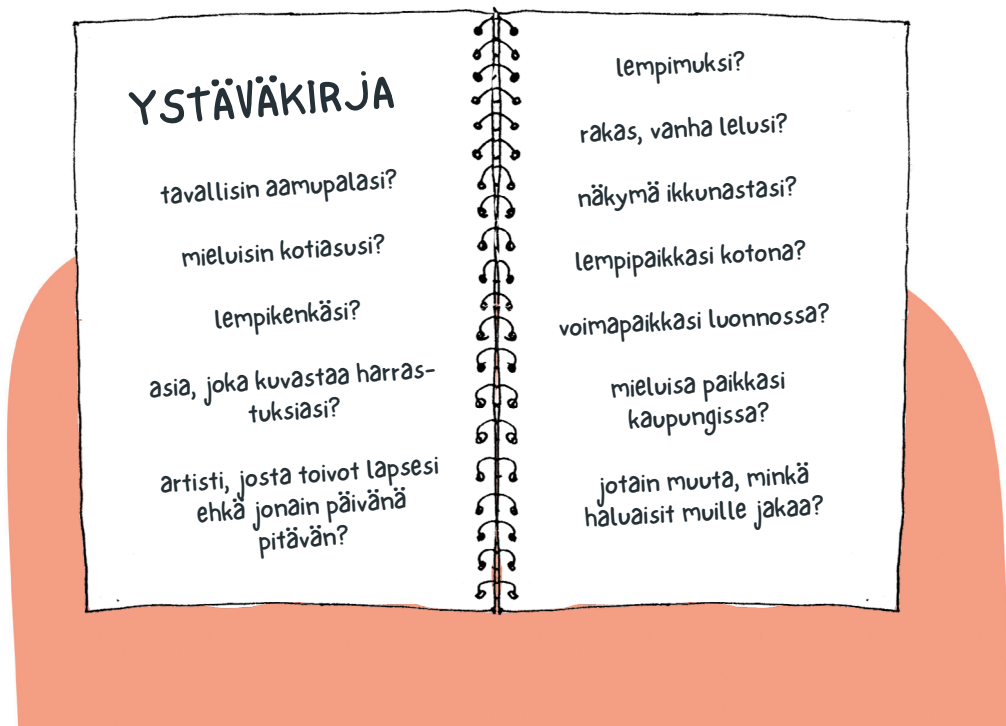 YSTÄVÄKIRJA
tavallisin aamupalasi?
mieluisin kotiasusi?
lempikenkäsi?
asia, joka kuvastaa harras-
tuksiasi?
artisti, josta toivot lapsesi
ehkä jonain päivänä
pitävän?
lempimuksi?
rakas, vanha lelusi?
näkymä ikkunastasi?
lempipaikkasi kotona?
voimapaikkasi luonnossa?
mieluisa paikkasi
kaupungissa?
jotain muuta, minkä
haluaisit muille jakaa?